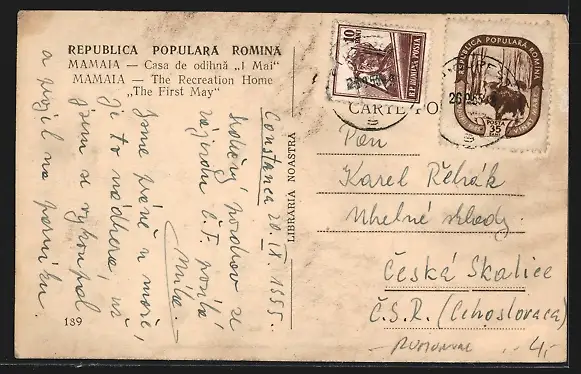 REPUBLICA POPULARĂ ROMÎNĂ
MAMAIA — Casa de odihnă „1 Mai"
MAMAIA — The Recreation Home
„The First May"
Constanca 20. IX. 1955.
Srdečný pozdrav ze
zájezdu Č.T. posílá
Míla.
Jsme právě u moře,
je to nádhera, už
jsem se vykoupal
a projel na parníku.
189
LIBRĂRIA NOASTRĂ
CARTE PO
10 BANI
R.P. ROMINA POSTA
REPUBLICA POPULARA ROMINA
POSTA
35
BANI
26.9.55
Pan
Karel Řehák
Uhelné sklady.
Česká Skalice
Č.S.R. (Cehoslovaca)
4,-